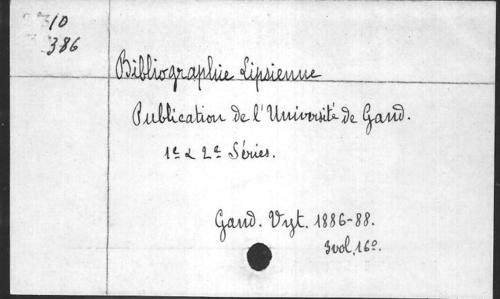 10
386
Bibliographie Lipsienne
Publication de l'Université de Gand.
1e & 2e Séries.
Gand. Vyt. 1886-88.
3 vol. 16o.